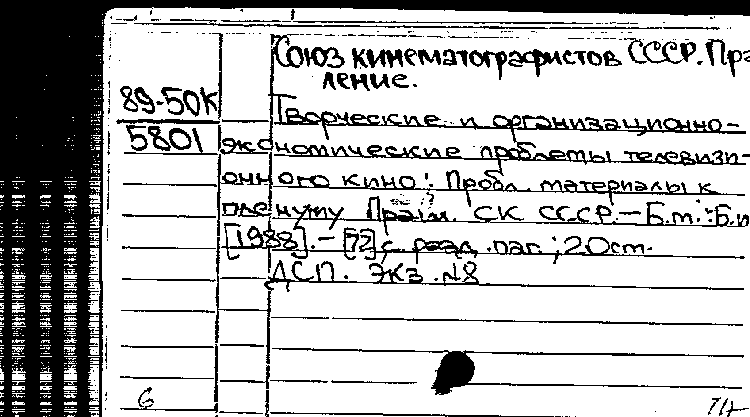 Союз кинематографистов СССР. Пра
ление.
89-50К
5801
Творческие и организационно-
экономические проблемы телевизи-
онного кино: Пробл. материалы к
пленуму Правл. СК СССР.—Б.м.:Б.и
[1988].— [72] с. разд. паг.; 20 см.
ДСП. Экз. №8
6